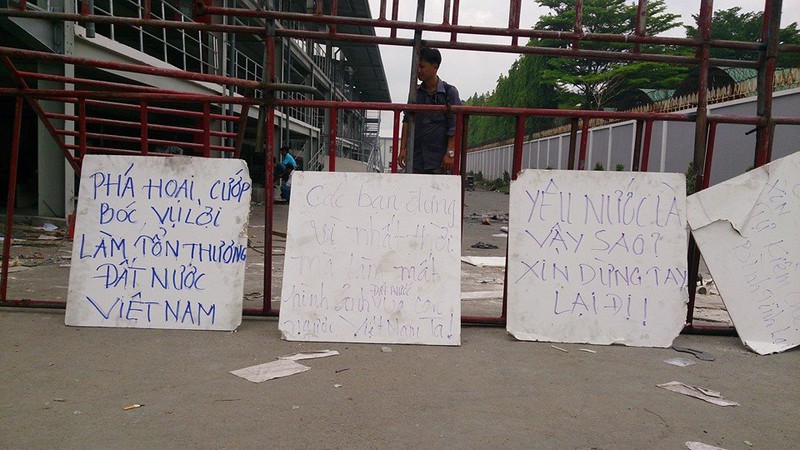 PHÁ HOẠI, CƯỚP
BÓC, VỤ LỢI
LÀM TỔN THƯƠNG
ĐẤT NƯỚC
VIỆT NAM
Các bạn đừng
vì nhất thời
mà làm mất
ĐẤT NƯỚC
hình ảnh và con
người Việt Nam Ta!
YÊU NƯỚC LÀ
VẬY SAO?
XIN DỪNG TAY
LẠI ĐI!!
Bình Tĩnh